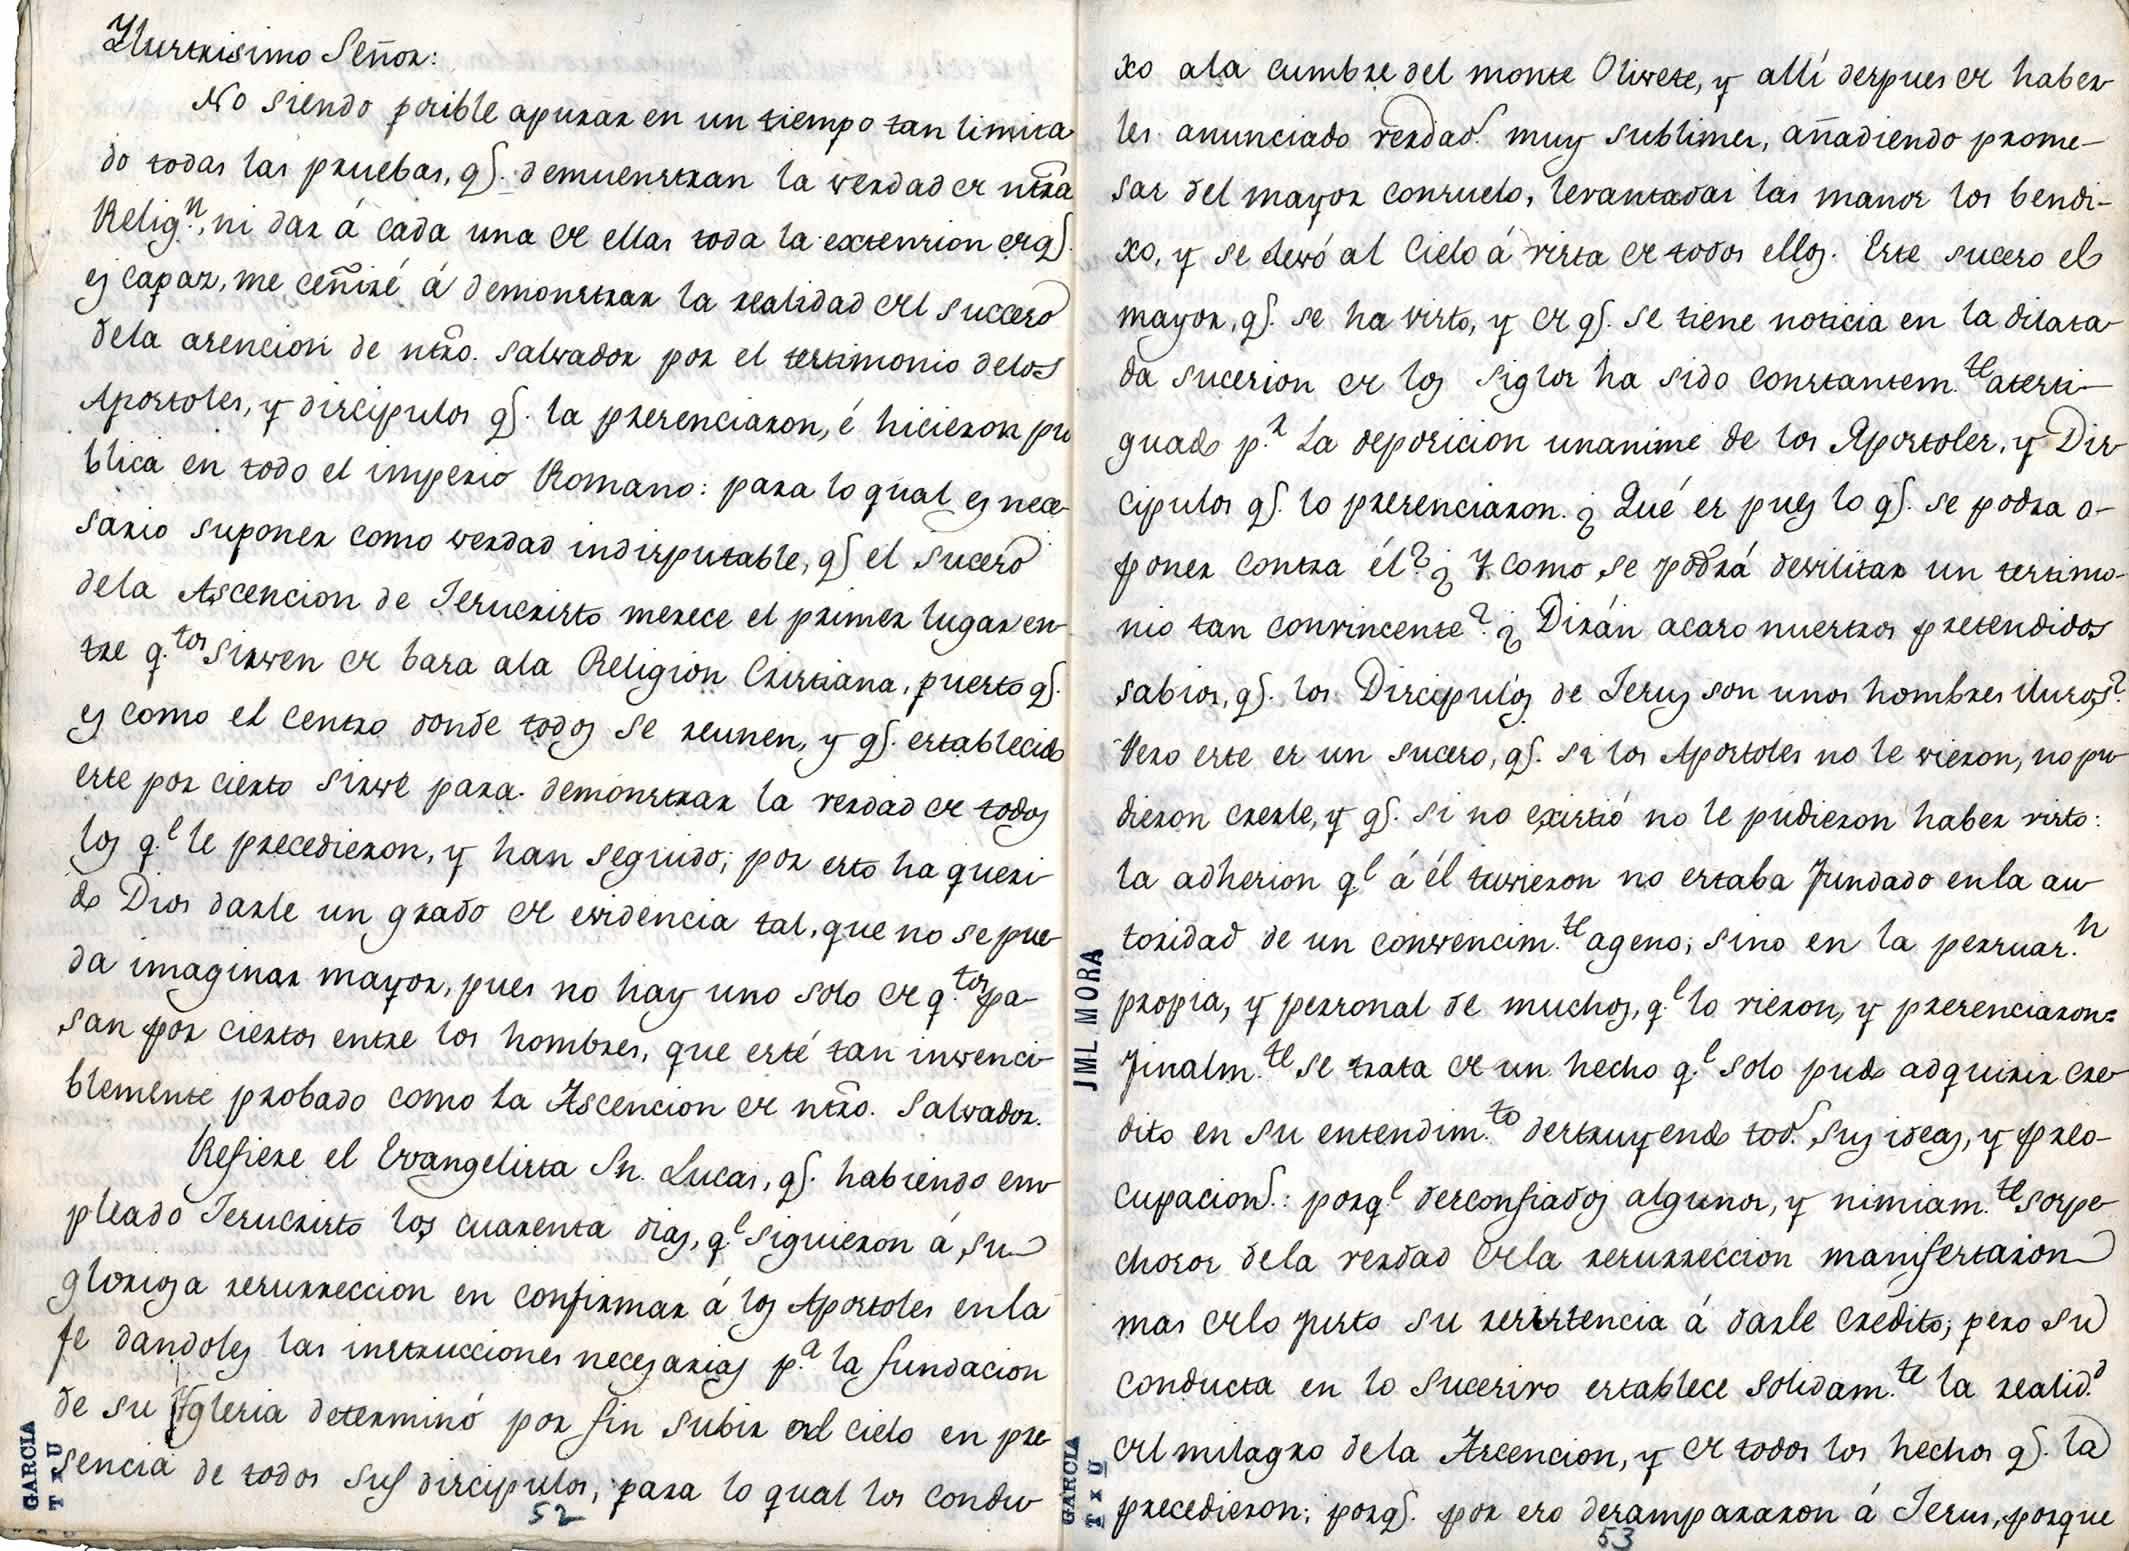 Ylustrisimo Señor:
No siendo posible apurar en un tiempo tan limita
do todas las pruebas, q͂. demuenstran la verdad de ntra
Relig.n, ni dar á cada una de ellas toda la extension de q͂.
es capaz, me ceñiré á demonstrar la realidad del succeso
dela asencion de ntro. Salvador por el testimonio delos
Apostoles, y discipulos q͂. la presenciaron, é hicieron pu
blica en todo el imperio Romano: para lo qual es nece-
sario suponer como verdad indisputable, q͂ el suceso
dela Ascencion de Jesucristo merece el primer lugar en-
tre q.tos sirven de basa ala Religion Cristiana, puesto q͂.
es como el centro donde todos se reunen, y q͂. establecido
este por cierto sirve para demonstrar la verdad de todos
los q.e le precedieron, y han seguido; por esto ha queri-
do Dios darle un grado de evidencia tal, que no se pue-
da imaginar mayor, pues no hay uno solo de q.tos pa-
san por ciertos entre los hombres, que esté tan invenci-
blemente probado como la Ascencion de ntro. Salvador.
Refiere el Evangelista Sn. Lucas, q͂. habiendo em-
pleado Jesucristo los cuarenta dias, q.e siguieron á su
gloriosa resurreccion en confirmar á los Apostoles enla
fe dandoles las instrucciones necesarias p.a la fundacion
de su Yglesia determinó por fin subir al cielo en pre-
sencia de todos sus discipulos, para lo qual los condu-
52
GARCIA
T x U
xo ala cumbre del monte Olivete, y allí despues de haber-
les anunciado verdad.s muy sublimes, añadiendo prome-
sas del mayor consuelo, levantadas las manos los bendi-
xo, y se elevó al Cielo á vista de todos ellos. Este suceso el
mayor, q͂. se ha visto, y de q͂. se tiene noticia en la dilata-
da sucesion de los siglos ha sido constantem.te atesti-
guado p.r la deposicion unanime de los Apostoles, y Dis-
cipulos q͂. lo presenciaron. ¿Qué es pues lo q͂. se podra o-
poner contra él? ¿Y como se podrá devilitar un testimo-
nio tan convincente? ¿Dirán acaso nuestros pretendidos
sabios, q͂. los Discipulos de Jesus son unos hombres ilusos?
Pero este es un suceso, q͂. si los Apostoles no le vieron, no pu-
dieron creerle, y q͂. si no existió no le pudieron haber visto:
la adhesion q.e á él tuvieron no estaba fundado enla au-
toridad de un convencim.te ageno; sino en la persuas.n
propia, y personal de muchos, q.e lo vieron, y presenciaron:
finalm.te se trata de un hecho q.e solo pudo adquirir cre-
dito en su entendim.to destruyendo tod.s sus ideas, y preo-
cupacion.s: porq.e desconfiados algunos, y nimiam.te sospe-
chosos dela verdad dela resurreccion manifestaron
mas delo justo su resistencia á darle credito; pero su
conducta en lo sucesivo establece solidam.te la realid.d
del milagro dela Ascencion, y de todos los hechos q͂. la
precedieron; porq͂. por eso desampararon á Jesus, porque
53
JML MORA
GARCIA
T x U